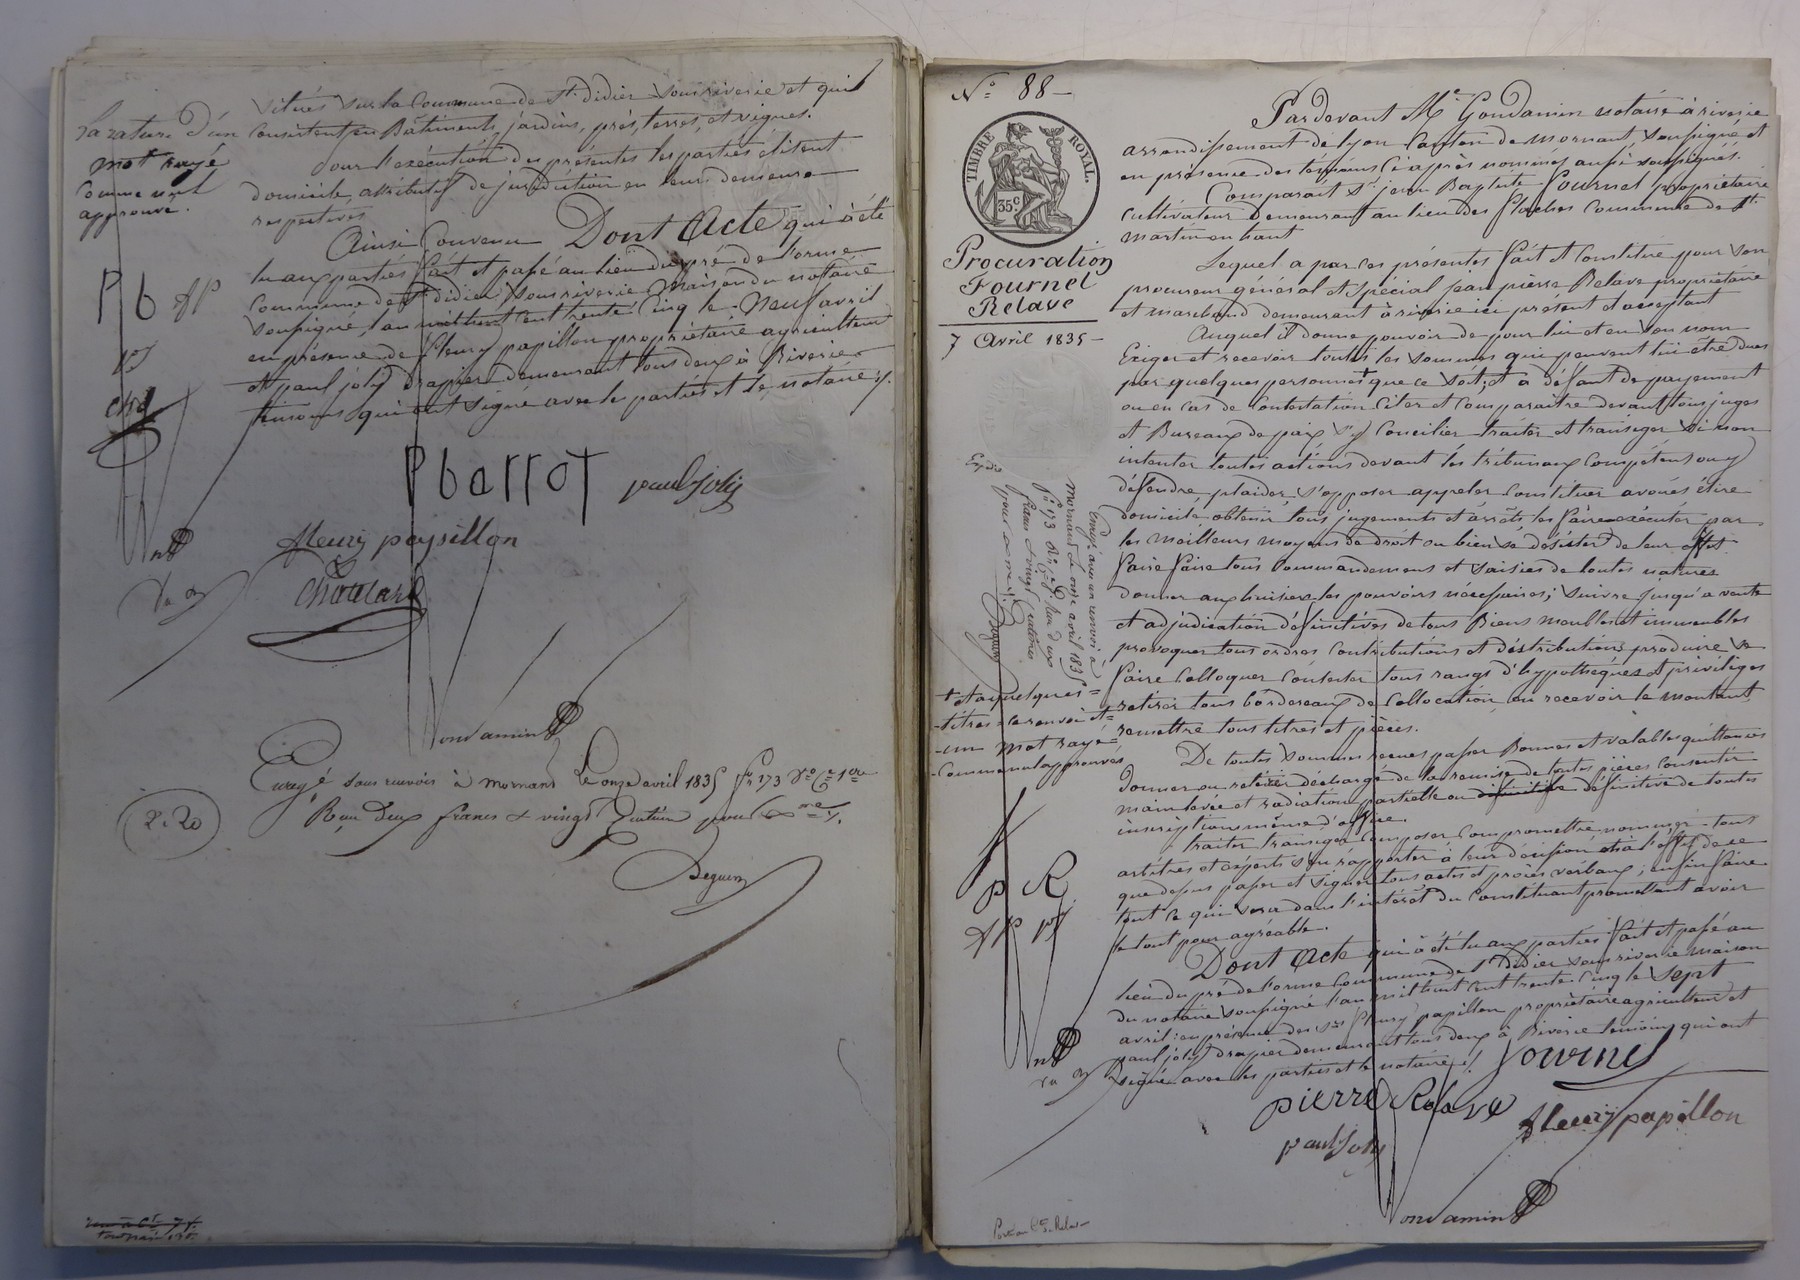 situés sur la commune de St. didier sous riverie et qui
consistent en Bâtiments, jardins, prés, terres, et vignes.
pour l'exécution des présentes les parties élisent
domicile, attributif de juridiction en leurs demeures
respectives
Ainsi Convenu Dont Acte qui a été
lu aux parties fait et passé au lieu du pré de l'orme
commune de St didier sous riverie maison du notaire
soussigné, l'an mil huit cent trente cinq le neuf avril
en présence de fleury papillon propriétaire agriculteur
et paul joly drapier demeurant tous deux à Riverie
témoins qui ont signé avec les parties et le notaire ./.
la rature d'un
mot rayé
comme nul
approuvé.
P b fP
pJ
chd
Pbarrot paul Joly
fleury papillon
Choulard
Gondamin
Enregé sans renvois à Mornand le onze avril 1835 fo 173 Vo Ce 1ere
Reçu deux francs & vingt centimes pour Xme ./.
2.20
Deguin
No 88 -
TIMBRE ROYAL.
35c
Procuration
Fournel
Relave
7 Avril 1835 -
Pardevant Me Gondamin notaire à riverie
arrondissement de lyon Canton de mornant, soussigné et
en présence des témoins ci après nommés aussi soussignés.
Comparait Sr. jean Baptiste fournel propriétaire
cultivateur demeurant au lieu des flaches commune de St.
martin en haut
Lequel a par ces présentes fait et constitué pour son
procureur général et spécial jean pierre Relave propriétaire
et marchand demeurant à riverie ici présent et acceptant
Auquel il donne pouvoir de pour lui et en son nom
Exiger et recevoir toutes les sommes qui peuvent lui être dues
par quelques personnes + que ce soit; et à défaut de payement
ou en cas de contestation citer et comparaitre devant tous juges
et Bureaux de paix s'y concilier traiter et transiger si non
intenter toutes actions devant les tribunaux compétens ou y
défendre, plaider, s'opposer appeler constituer avoués élire
domicile, obtenir tous jugements et arrêts, les faire exécuter par
les meilleurs moyens de droit ou bien se désister de leur effet
faire faire tous commandemens et saisies de toutes natures
donner aux huissiers les pouvoirs nécessaires; suivre jusqu'a vente
et adjudication définitives de tous Biens meubles et immeubles
provoquer tous ordres contributions et distributions produire se
faire colloquer contester tous rangs d'hypothéques et priviléges
retirer tous bordereaux de collocation en recevoir le montant,
remettre tous titres et pièces.
De toutes sommes reçues passer Bonnes et valables quittances
donner ou retirer décharge de la remise de toutes pièces consentir
main levée et radiation partielle ou définitive définitive de toutes
inscriptions même d'office.
traiter transiger composer compromettre nommer tous
arbitres et experts s'en rapporter à leur décision et à l'effet de ce
que dessus passer et signer tous actes et procès verbaux; enfin faire
tout ce qui sera dans l'intérêt du constituant promettant avoir
le tout pour agréable.
Dont Acte qui a été lu aux parties fait et passé au
lieu du pré de l'orme commune de St Didier sous riverie maison
du notaire soussigné l'an mil huit cent trente cinq le sept
avril: en présence des srs fleury papillon propriétaire agriculteur et
paul joly drapier demeurant tous deux à Riverie témoins qui ont
signé avec les parties et le notaire ./.
Expdié
Enregé avec un renvoi à
Mornand le onze avril 1835
fo 173 Reçu deux
francs & vingt centimes
pour Xme ./. Deguin
+ et à quelques
titres = le renvoi et
un mot rayé
comme nul approuvés
f
p R
fP pJ
fournel
pierre Relave
fleury papillon
paul Joly
Gondamin